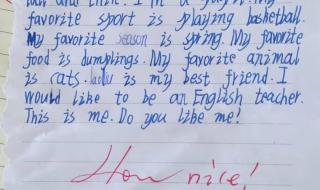 and thin. I'm a
favorite sport is playing basketball.
My favorite season is spring. My favorite
food is dumplings. My favorite animal
is cats. is my best friend. I
would like to be an English teacher.
This is me. Do you like me!
How nice!